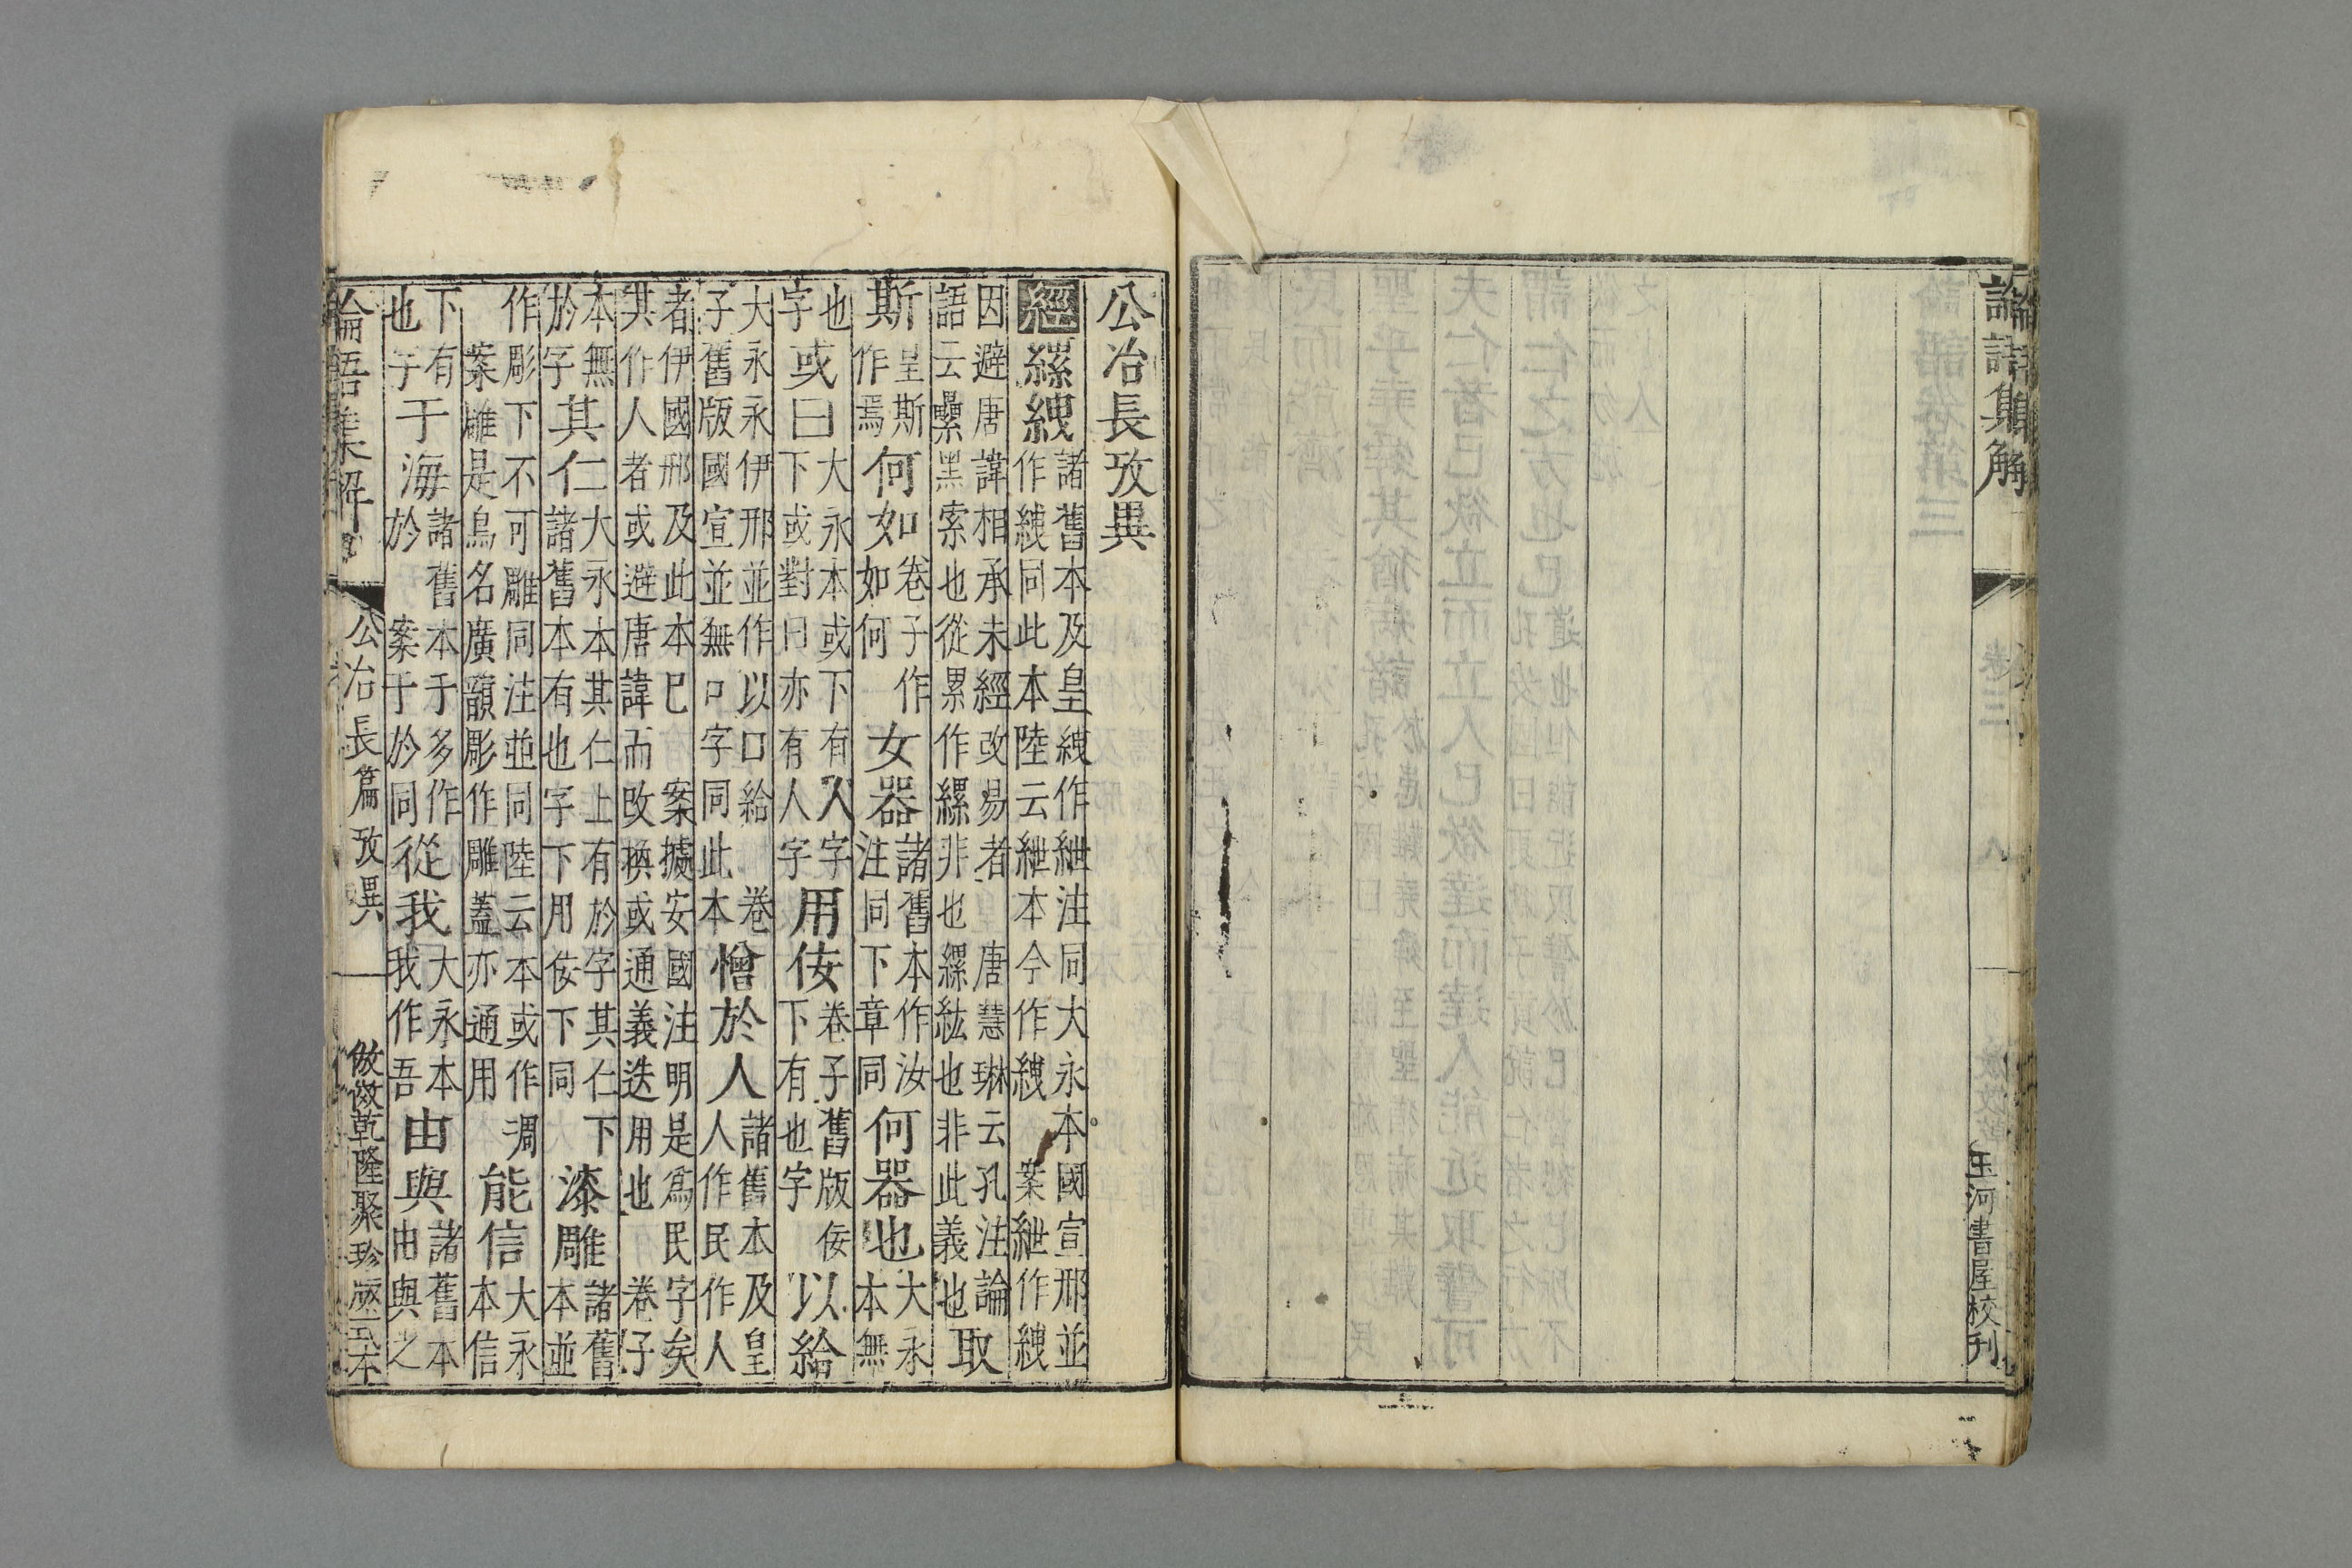 論語集解
玉河書屋校刊
公冶長攷異
經縲絏諸舊本及皇絏作紲注同大永本國宣邢並作絏同此本陸云紲本今作絏 案紲作絏
因避唐諱相承未經改易者 唐慧琳云孔注論語云纍黑索也從累作縲非也縲紘也非此義也取
斯皇斯作焉何如卷子作如何女器諸舊本作汝注同下章同何器也大永本無
也字或曰大永本或下有入字下或對曰亦有人字用佞卷子舊版佞下有也字以給
大永永伊邢並作以口給 卷子舊版國宣並無口字同此本憎於人諸舊本及皇人作民作人
者伊國邢及此本已 案據安國注明是爲民字矣其作人者或避唐諱而改換或通義迭用也 卷子
本無於字其仁大永本其仁上有於字其仁下諸舊本有也字下用佞下同漆雕諸舊本並
作彫下不可雕同注並同陸云本或作凋案雕是鳥名廣韻彫作雕蓋亦通用能信大永本信
下有也字于海諸舊本于多作於 案于於同從我大永本我作吾由與諸舊本由與之
論語集解 公冶長篇攷異 倣乾隆聚珍版式本